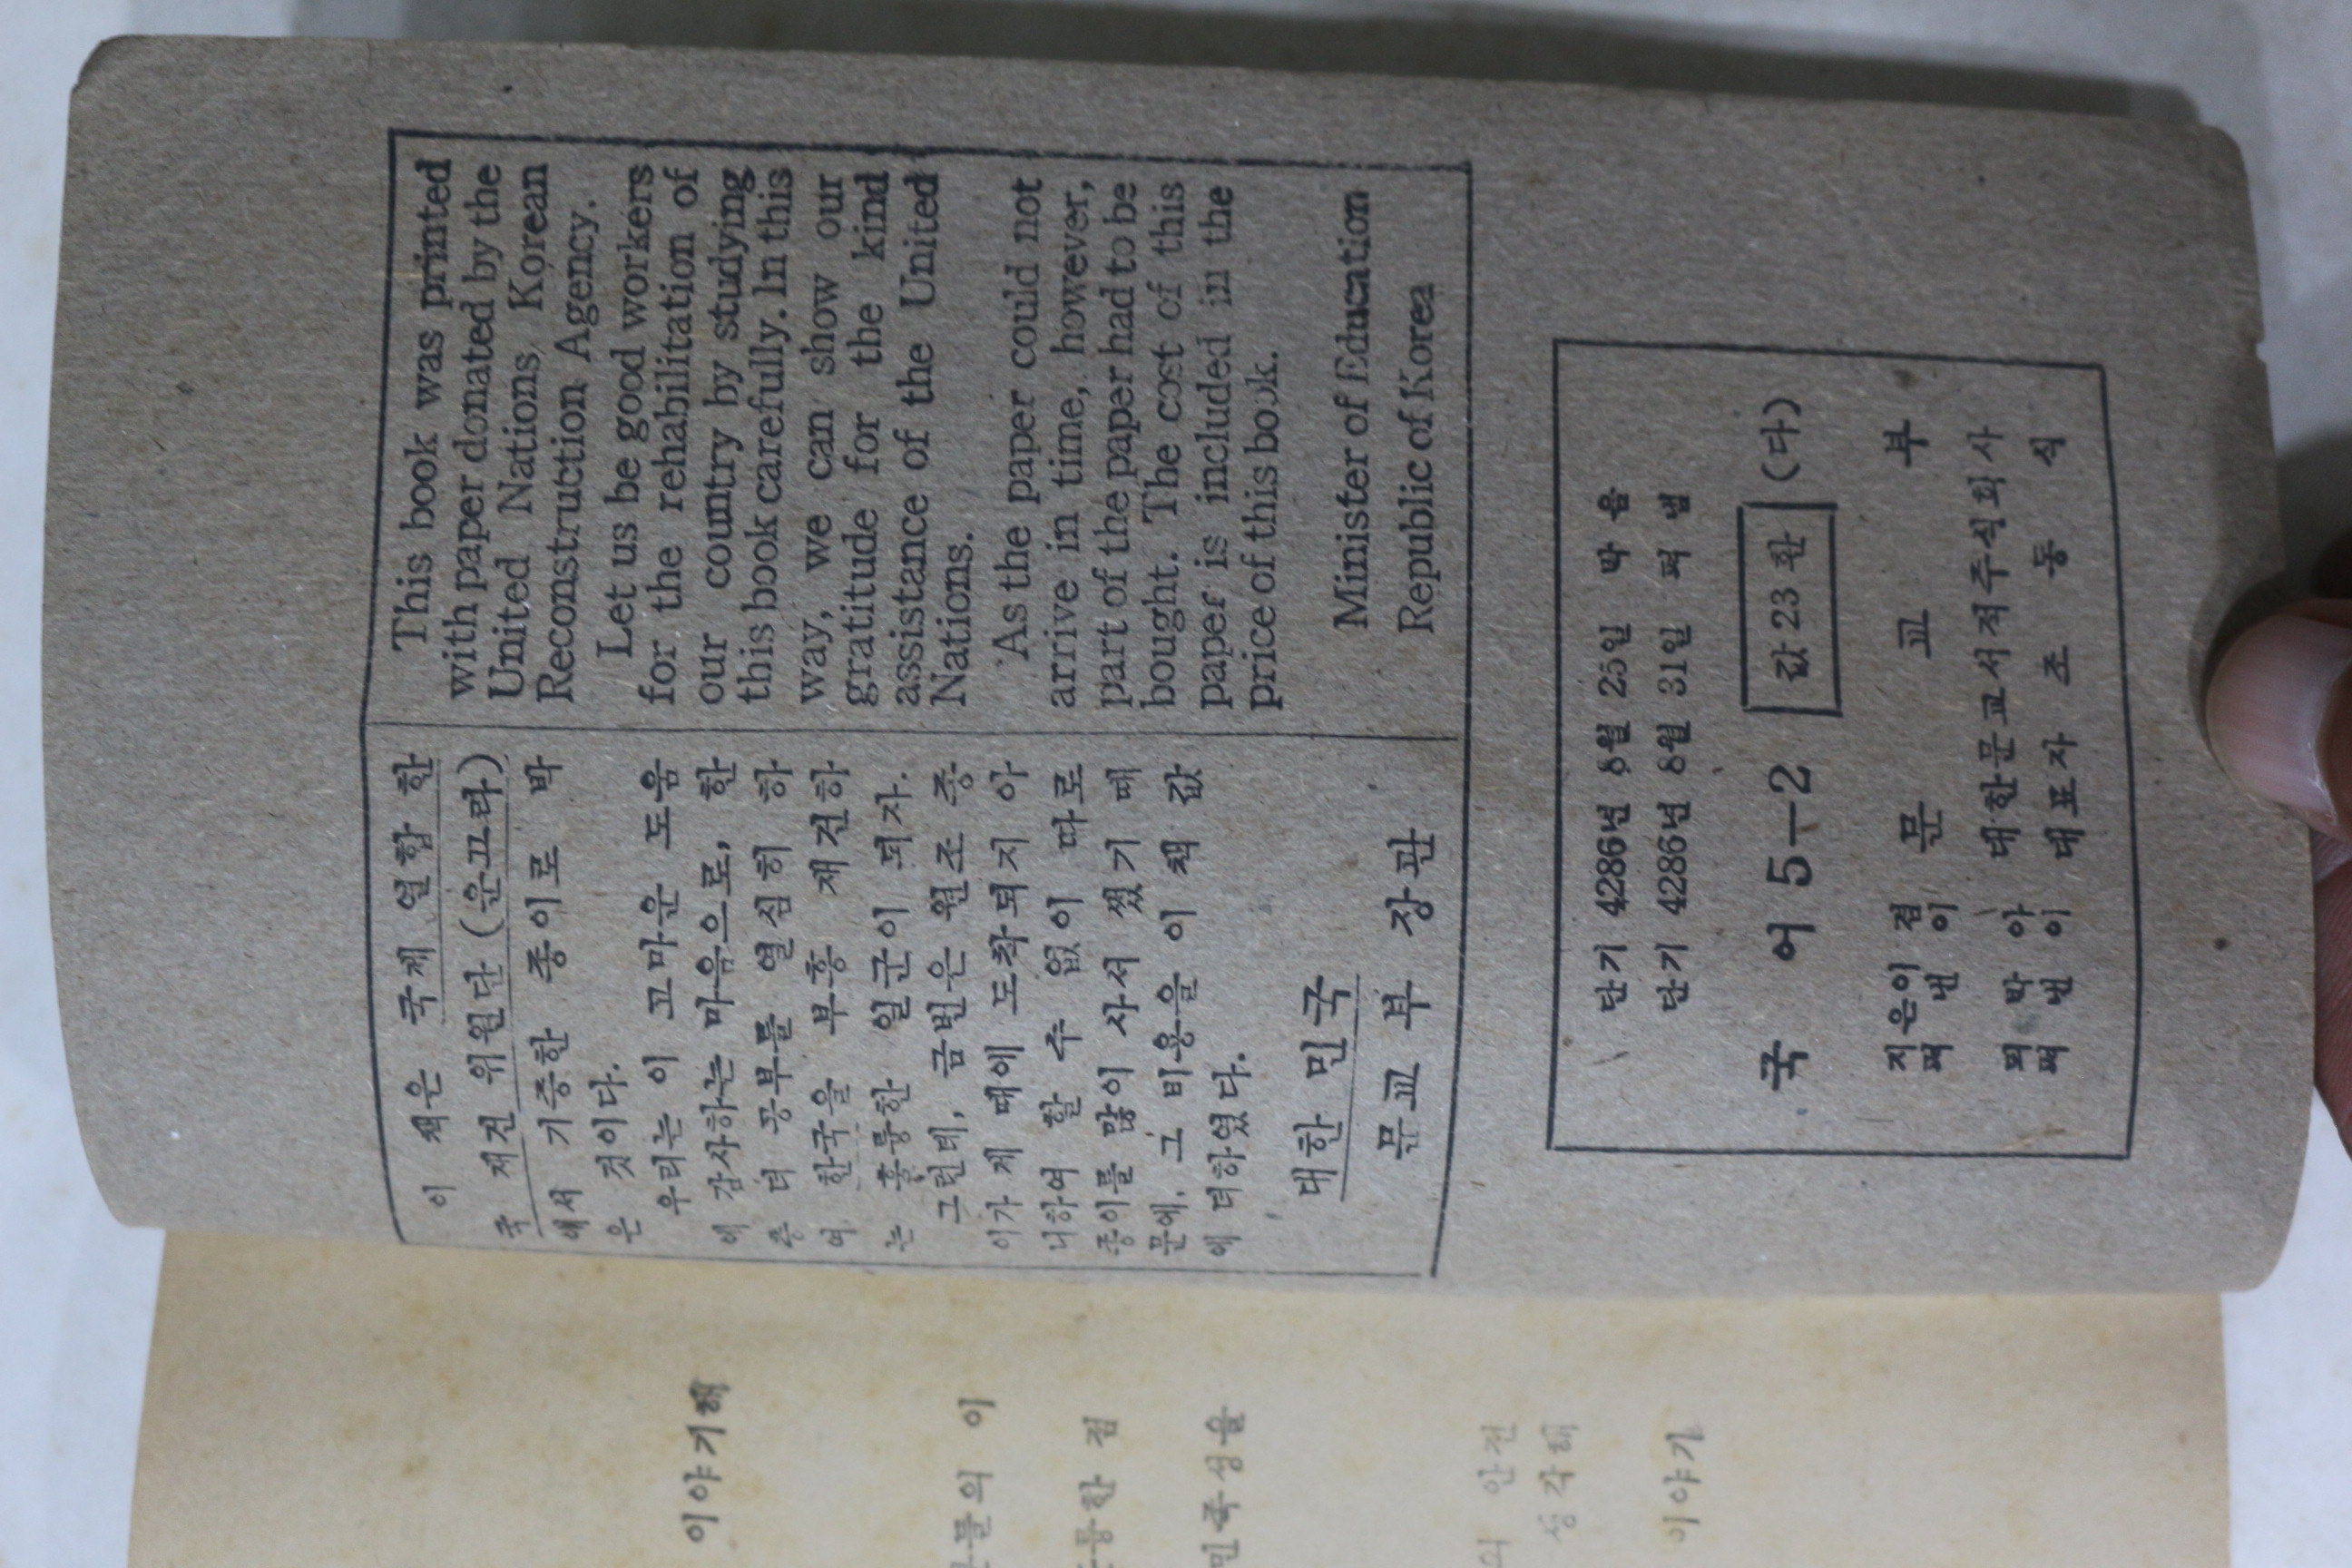 이 책은 국제 연합 한
국 재건 위원단 (운끄라)
에서 기증한 종이로 박
은 것이다.
우리는 이 고마운 도움
에 감사하는 마음으로, 한
층 더 공부를 열심히 하
여 한국을 부흥 재건하
는 훌륭한 일군이 되자.
그런데, 금번은 원조 종
이가 제 때에 도착되지 아
니하여 할 수 없이 따로
종이를 많이 사서 썼기 때
문에, 그 비용을 이 책 값
에 더하였다.
대한 민국
문교부 장관
This book was printed
with paper donated by the
United Nations Korean
Reconstruction Agency.
Let us be good workers
for the rehabilitation of
our country by studying
this book carefully. In this
way, we can show our
gratitude for the kind
assistance of the United
Nations.
As the paper could not
arrive in time, however,
part of the paper had to be
bought. The cost of this
paper is included in the
price of this book.
Minister of Education
Republic of Korea
단기 4286년 8월 25일 박음
단기 4286년 8월 31일 펴냄
국 어 5—2 값 23환 (다)
지은이 겸
펴낸이 문 교 부
박아
펴낸이 대한문교서적주식회사
대표자 조 동 식
이야기해
물의 이
륭한 점
민족성을
의 안전
생각해
이야기